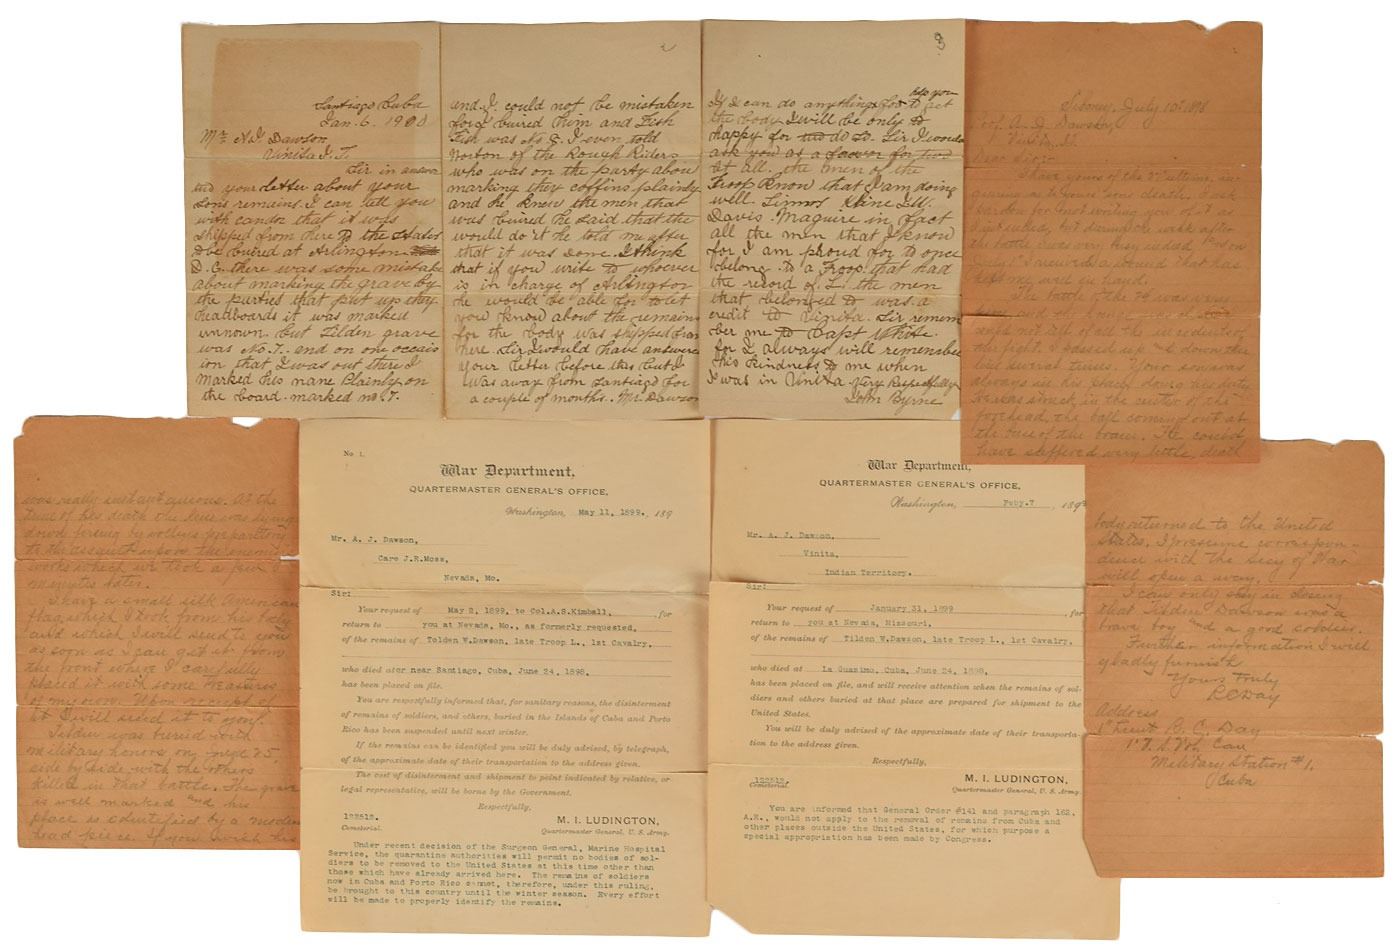 Santiago Cuba
Jan. 6. 1900
Mr A J Dawson
Vinita I. T.
Sir in answer
to your letter about your
sons remains. I can tell you
with candor that it was
shipped from here to the States
to be buired at Arlington
D. C. there was some mistake
about marking the grave by
the parties that put up they
headboards it was marked
unnown. but Tilden grave
was No. 7. and on one occais
ion that I was out there I
marked his name Plainly on
the board. marked no. 7.
2
and I. could not be mistaken
for I buired him and Fish
Fish was No 8. I even told
Norton of the Rough Riders
who was on the party abou
marking they coffins plainly
and he knew the men that
was buired he said that he
would do it he told me after
that it was done. I think
that if you write to whoever
is in charge of Arlington
he would be able for to let
you know about the remains
for the body was shipped from
here. Sir I would have answered
your letter before this but I
was away from Santiago for
a couple of months. Mr. Dawson
3
If I can do anything for to help you get
the body I will be only to
happy for to do so. Sir I would
ask you as a favor for
at all. the men of the
Troop know that I am doing
well. Kline Ill.
Davis. Maguire in fact
all the men that I know
for I am proud for to once
belong to a Troop that had
the record of L. the men
that belonged to was a
credit to Vinita. Sir remem
ber me to Capt White
for I always will remember
his kindness to me when
I was in Vinita. Very Respectfully
John Byrne
Siboney, July 10" 1898
Prof. A. J. Dawson,
Vinita, I.T.
Dear Sir:-
I have yours of the 2" ulting, in-
quiring as to your sons death. I ask
pardon for not writing you of it as
I intended, but during the week after
the battle I was very busy indeed &
July 1" I received a wound that has
kept me well in hand.
The battle of the 24 was very
the fight. I passed up & down the
line several times. Your son was
always in his place doing his duty
He was struck in the center of the
forehead, the ball coming out at
the base of the brain. He could
have suffered very little, death
was really instantaneous. At the
time of his death the line was lying
down firing by volleys preparatory
to the assault upon the enemy's
works which we took a few
minutes later.
I have a small silk American
flag which I took from his body
and which I will send to you
as soon as I can get it from
the front where I carefully
placed it with some treasures
of my own. Upon receipt of
it I will send it to you.
Tilden was buried with
military honors on June 25,
side by side with the others
killed in that battle. The grave
is well marked and his
place is identified by a wooden
head piece. If you wish his
body returned to the United
States, I presume correspon-
dence with the Secy of War
will open a way.
I can only say in closing
that Tilden Dawson was a
brave boy and a good soldier.
Further information I will
gladly furnish
Yours truly
R C Day
Address
1" Lieut R. C. Day
1" U. S. Vol. Cav
Military Station #1.
Cuba
No 1.
War Department,
QUARTERMASTER GENERAL'S OFFICE,
Washington, May 11, 1899. , 189
Mr. A. J. Dawson,
Care J.R.Moss,
Nevada, Mo.
Sir:
Your request of May 2, 1899, to Col.A.S.Kimball, , for
return to you at Nevada, Mo., as formerly requested,
of the remains of Tolden W.Dawson, late Troop L., 1st Cavalry,
who died at or near Santiago, Cuba, June 24, 1898,
has been placed on file.
You are respectfully informed that, for sanitary reasons, the disinterment
of remains of soldiers, and others, buried in the Islands of Cuba and Porto
Rico has been suspended until next winter.
If the remains can be identified you will be duly advised, by telegraph,
of the approximate date of their transportation to the address given.
The cost of disinterment and shipment to point indicated by relative, or
legal representative, will be borne by the Government.
Respectfully,
M. I. LUDINGTON,
Quartermaster General, U. S. Army.
122512.
Cemeterial.
Under recent decision of the Surgeon General, Marine Hospital
Service, the quarantine authorities will permit no bodies of sol-
diers to be removed to the United States at this time other than
those which have already arrived here. The remains of soldiers
now in Cuba and Porto Rico cannot, therefore, under this ruling,
be brought to this country until the winter season. Every effort
will be made to properly identify the remains.
War Department,
QUARTERMASTER GENERAL'S OFFICE,
Washington, Feby.7 , 189
Mr. A. J. Dawson,
Vinita,
Indian Territory.
Sir:
Your request of January 31, 1899 , for
return to you at Nevada, Missouri,
of the remains of Tilden W.Dawson, late Troop L., 1st Cavalry,
who died at La Guasimo, Cuba, June 24, 1898,
has been placed on file, and will receive attention when the remains of sol-
diers and others buried at that place are prepared for shipment to the
United States.
You will be duly advised of the approximate date of their transporta-
tion to the address given.
Respectfully,
M. I. LUDINGTON,
Quartermaster General, U. S. Army.
122512.
Cemeterial.
You are informed that General Order #141 and paragraph 162,
A.R., would not apply to the removal of remains from Cuba and
other places outside the United States, for which purpose a
special appropriation has been made by Congress.